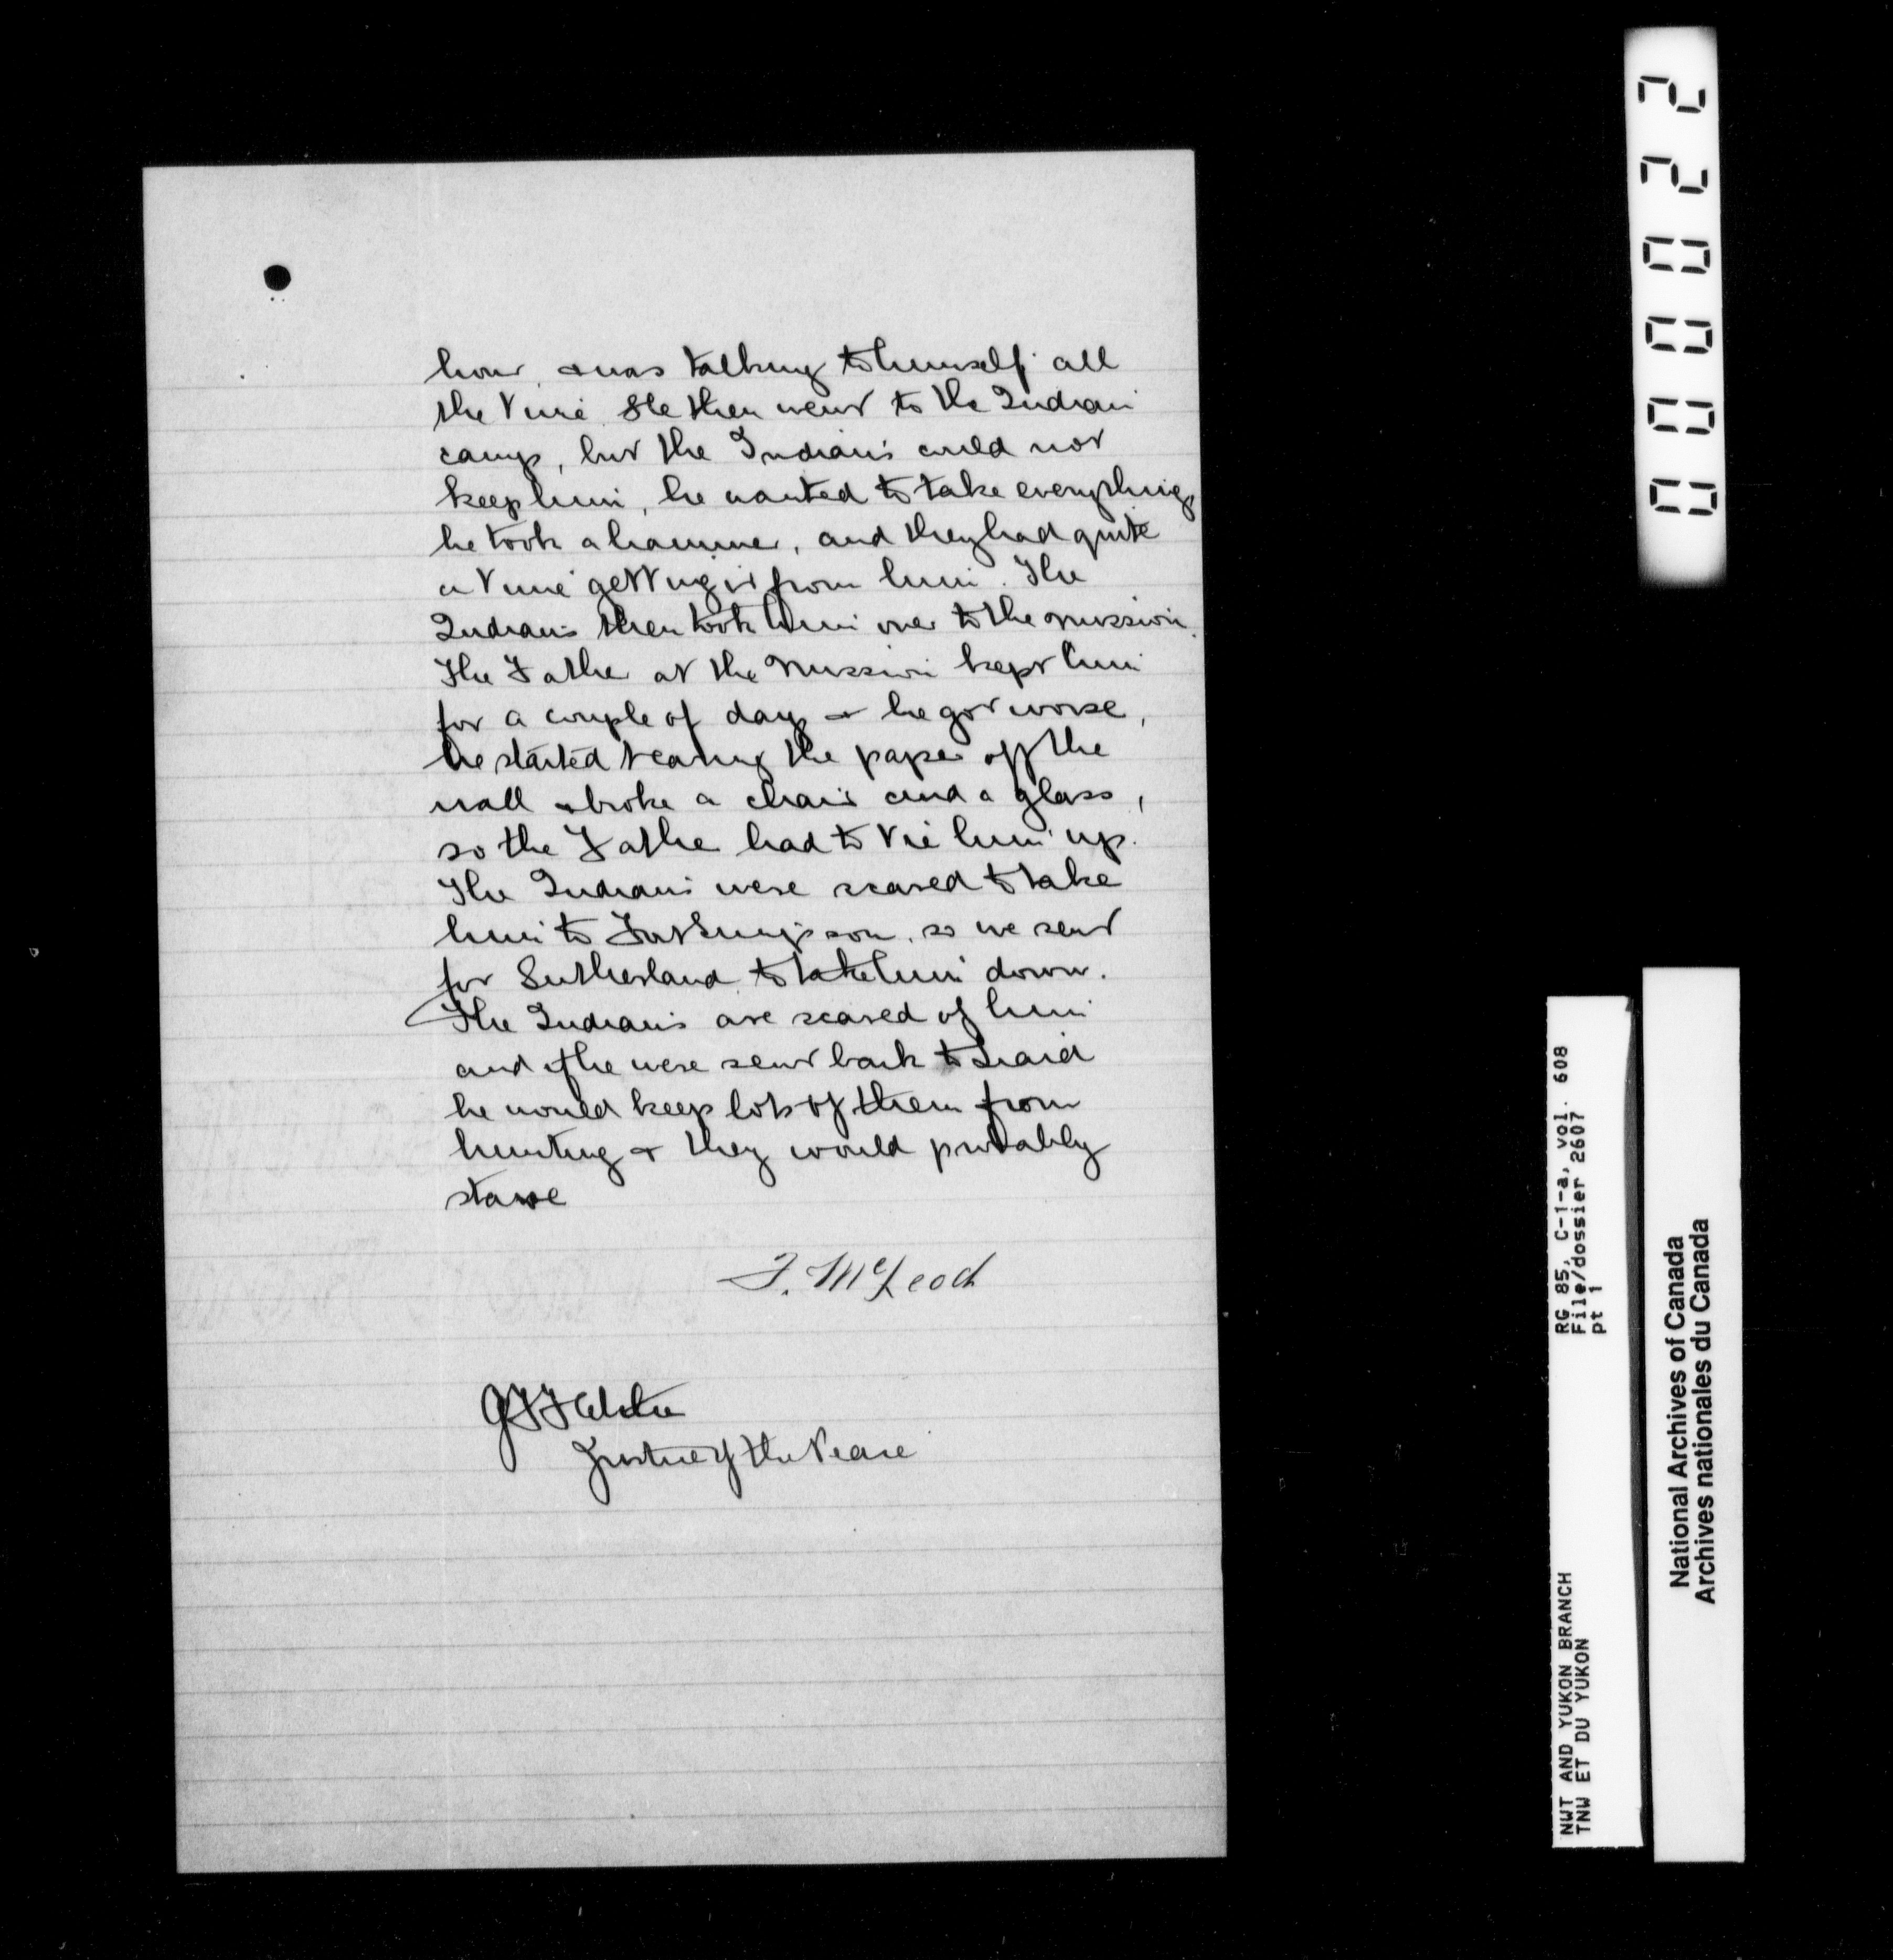 hour, & was talking to himself all
the time. He then went to the Indian
camp, but the Indians could not
keep him, he wanted to take everything,
he took a hammer, and they had quite
a time getting it from him. The
Indians then took him over to the mission.
The Father at the Mission kept him
for a couple of days & he got worse,
he started tearing the paper off the
wall & broke a chair and a glass,
so the Father had to tie him up.
The Indians were scared to take
him to Fort Simpson, so we sent
for Sutherland to take him down.
The Indians are scared of him
and if he were sent back to Liard
he would keep lots of them from
hunting & they would probably
starve
F. McLeod
Justice of the Peace
000022
RG 85, C-1-a, vol. 608
File/dossier 2607
pt 1
NWT AND YUKON BRANCH
TNW ET DU YUKON
National Archives of Canada
Archives nationales du Canada